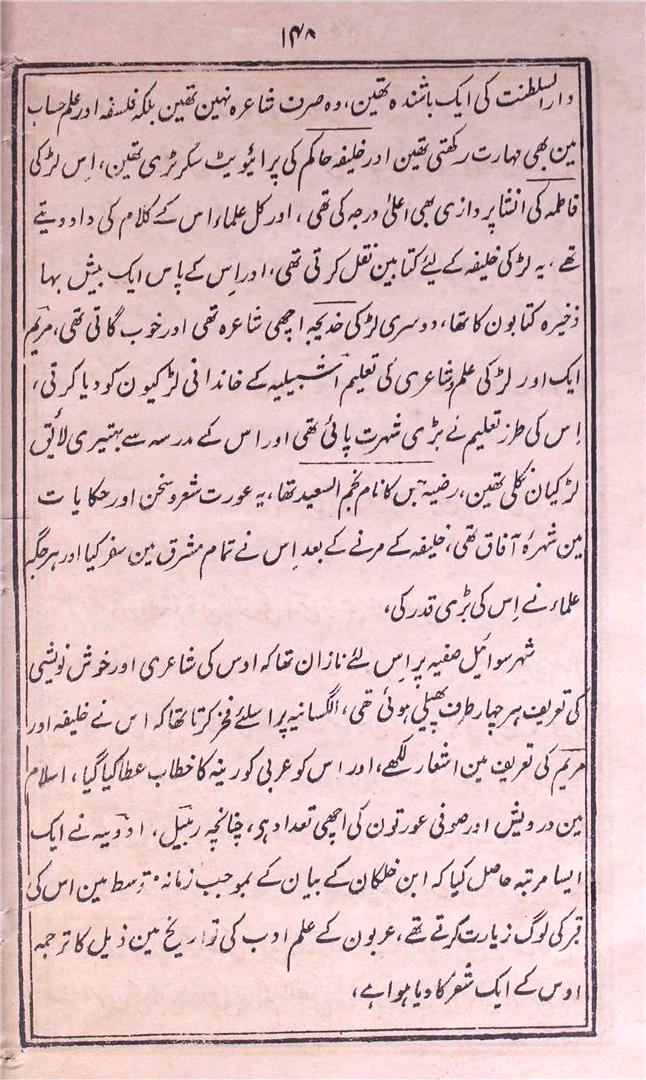 ۱۴۸
دارالسلطنت کی ایک باشندہ تھین، وہ صرف شاعرہ نہین تھین بلکہ فلسفہ اور علم حساب
مین بھی مہارت رکھتی تھین اور خلیفہ حاکم کی پرائیویٹ سکرٹری تھین، اِس لڑکی
فاطمہ کی انشا پردازی بھی اعلیٰ درجہ کی تھی، اور کل علماء اس کے کلام کی داد دیتے
تھے، یہ لڑکی خلیفہ کے لیئے کتابین نقل کرتی تھی، اور اِس کے پاس ایک بیش بہا
ذخیرہ کتابون کا تھا، دوسری لڑکی خدیجہ اچھی شاعرہ تھی اور خوب گاتی تھی، مریم
ایک اور لڑکی علم و شاعری کی تعلیم اشبیلیہ کے خاندانی لڑکیون کو دیا کرتی،
اِس کی طرز تعلیم نے بڑی شہرت پائی تھی اور اس کے مدرسہ سے بہتیری لائق
لڑکیان نکلی تھین، رضیہ جس کا نام نجم السعید تھا، یہ عورت شعر و سخن اور حکایات
مین شہرۂ آفاق تھی، خلیفہ کے مرنے کے بعد اِس نے تمام مشرق مین سفر کیا اور ہر جگہ
علماء نے اِس کی بڑی قدر کی،
شہر سوائیل صفیہ پر اِس لئے نازان تھا کہ اوس کی شاعری اور خوش نویشی
کی تعریف ہر چہار طرف پھیلی ہوئی تھی، الگسانیہ پر اسلئے فخر کرتا تھا کہ اس نے خلیفہ اور
مریم کی تعریف مین اشعار لکھے، اور اس کو عربی کورینہ کا خطاب عطا کیا گیا، اسلام
مین درویش اور صوفی عورتون کی اچھی تعداد ہی، چنانچہ ربیل، ادویہ نے ایک
ایسا مرتبہ حاصل کیا کہ ابن خلکان کے بیان کے بموجب زمانہ متوسط مین اس کی
قبر کی لوگ زیارت کرتے تھے، عربون کے علم ادب کی تواریخ مین ذیل کا ترجمہ
اوس کے ایک شعر کا دیا ہوا ہے،